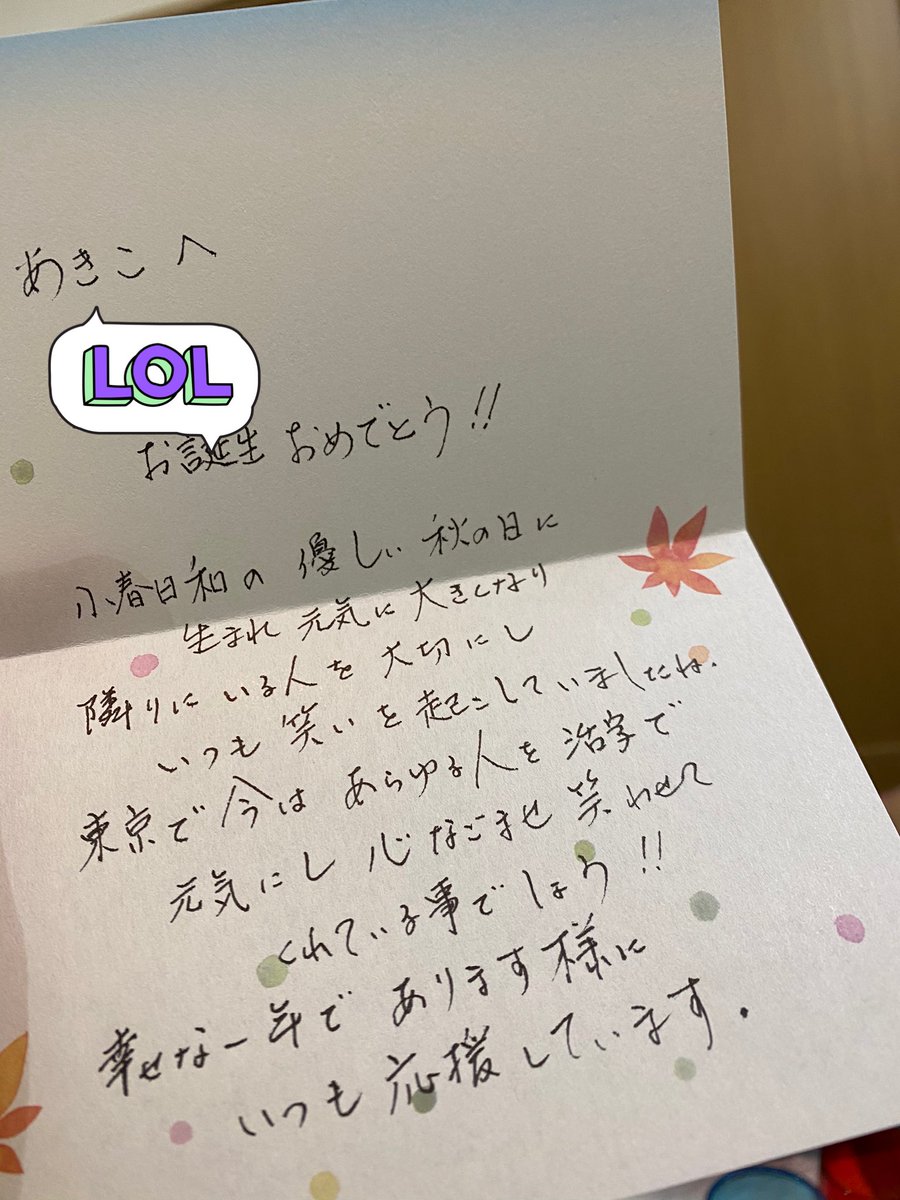 あきこへ
LOL
お誕生おめでとう!!
小春日和の優しい秋の日に
生まれ元気に大きくなり
隣りにいる人を大切にし
いつも笑いを起こしていましたね.
東京で今はあらゆる人を活字で
元気にし心なごませ笑わせて
くれている事でしょう!!
幸せな一年であります様に
いつも応援しています.